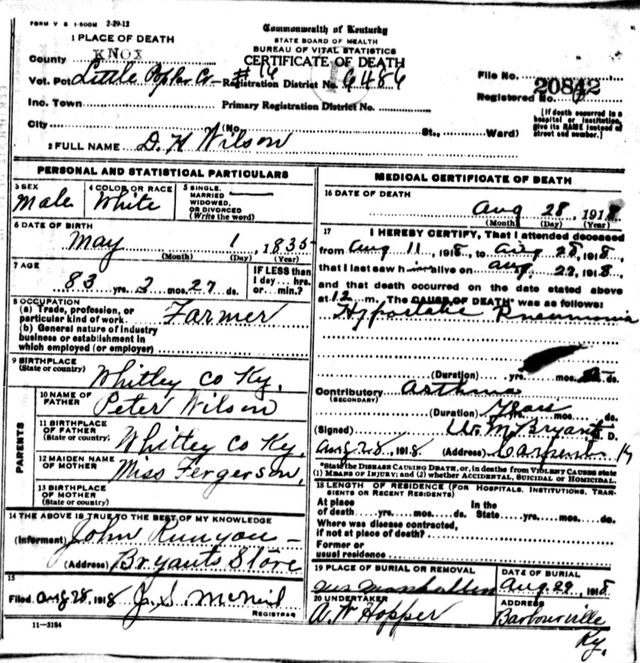 FORM V S 1-500M 2-29-12
Commonwealth of Kentucky
STATE BOARD OF HEALTH
BUREAU OF VITAL STATISTICS
CERTIFICATE OF DEATH
1 PLACE OF DEATH
County KNOX
Vot. Pct Little Poplar Co- #14 Registration District No. 6486
File No. 20842
Inc. Town Primary Registration District No.
Registered No.
City (No. St., Ward)
[If death occurred in a hospital or institution, give its NAME instead of street and number.]
2 FULL NAME D. K Wilson
PERSONAL AND STATISTICAL PARTICULARS
3 SEX Male
4 COLOR OR RACE White
5 SINGLE, MARRIED WIDOWED, OR DIVORCED (Write the word)
6 DATE OF BIRTH May 1, 1835
(Month) (Day) (Year)
7 AGE 83 yrs. 3 mos. 27 ds.
IF LESS than 1 day... hrs. or... min.?
8 OCCUPATION
(a) Trade, profession, or particular kind of work Farmer
(b) General nature of industry business or establishment in which employed (or employer)
9 BIRTHPLACE (State or country) Whitley Co Ky.
PARENTS
10 NAME OF FATHER Peter Wilson
11 BIRTHPLACE OF FATHER (State or country) Whitley Co Ky.
12 MAIDEN NAME OF MOTHER Miss Fergerson
13 BIRTHPLACE OF MOTHER (State or country)
14 THE ABOVE IS TRUE TO THE BEST OF MY KNOWLEDGE
(Informant) John Runyou
(Address) Bryants Store
15
Filed Aug 28, 1918 J. S. McNeil
REGISTRAR
11-3184
MEDICAL CERTIFICATE OF DEATH
16 DATE OF DEATH
Aug 28, 1918
(Month) (Day) (Year)
17 I HEREBY CERTIFY, That I attended deceased
from Aug 11, 1918, to Aug 28, 1918,
that I last saw him alive on Aug. 22, 1918,
and that death occurred on the date stated above
at 12 m. The CAUSE OF DEATH* was as follows:
Hypostatic Pneumonia
(Duration) yrs. mos. ds.
Contributory Asthma
(SECONDARY)
(Duration) yrs. mos. ds.
(Signed) M Bryant M. D.
Aug 28, 1918 (Address) Ky
*State the DISEASE CAUSING DEATH, or, in deaths from VIOLENT CAUSES state (1) MEANS OF INJURY; and (2) whether ACCIDENTAL, SUICIDAL or HOMICIDAL.
18 LENGTH OF RESIDENCE (FOR HOSPITALS, INSTITUTIONS, TRANSIENTS OR RECENT RESIDENTS)
At place of death yrs. mos. ds. In the State yrs. mos. ds.
Where was disease contracted, if not at place of death?
Former or usual residence
19 PLACE OF BURIAL OR REMOVAL
DATE OF BURIAL Aug. 29, 1918
20 UNDERTAKER A. W Hopper
ADDRESS Barbourville Ky.